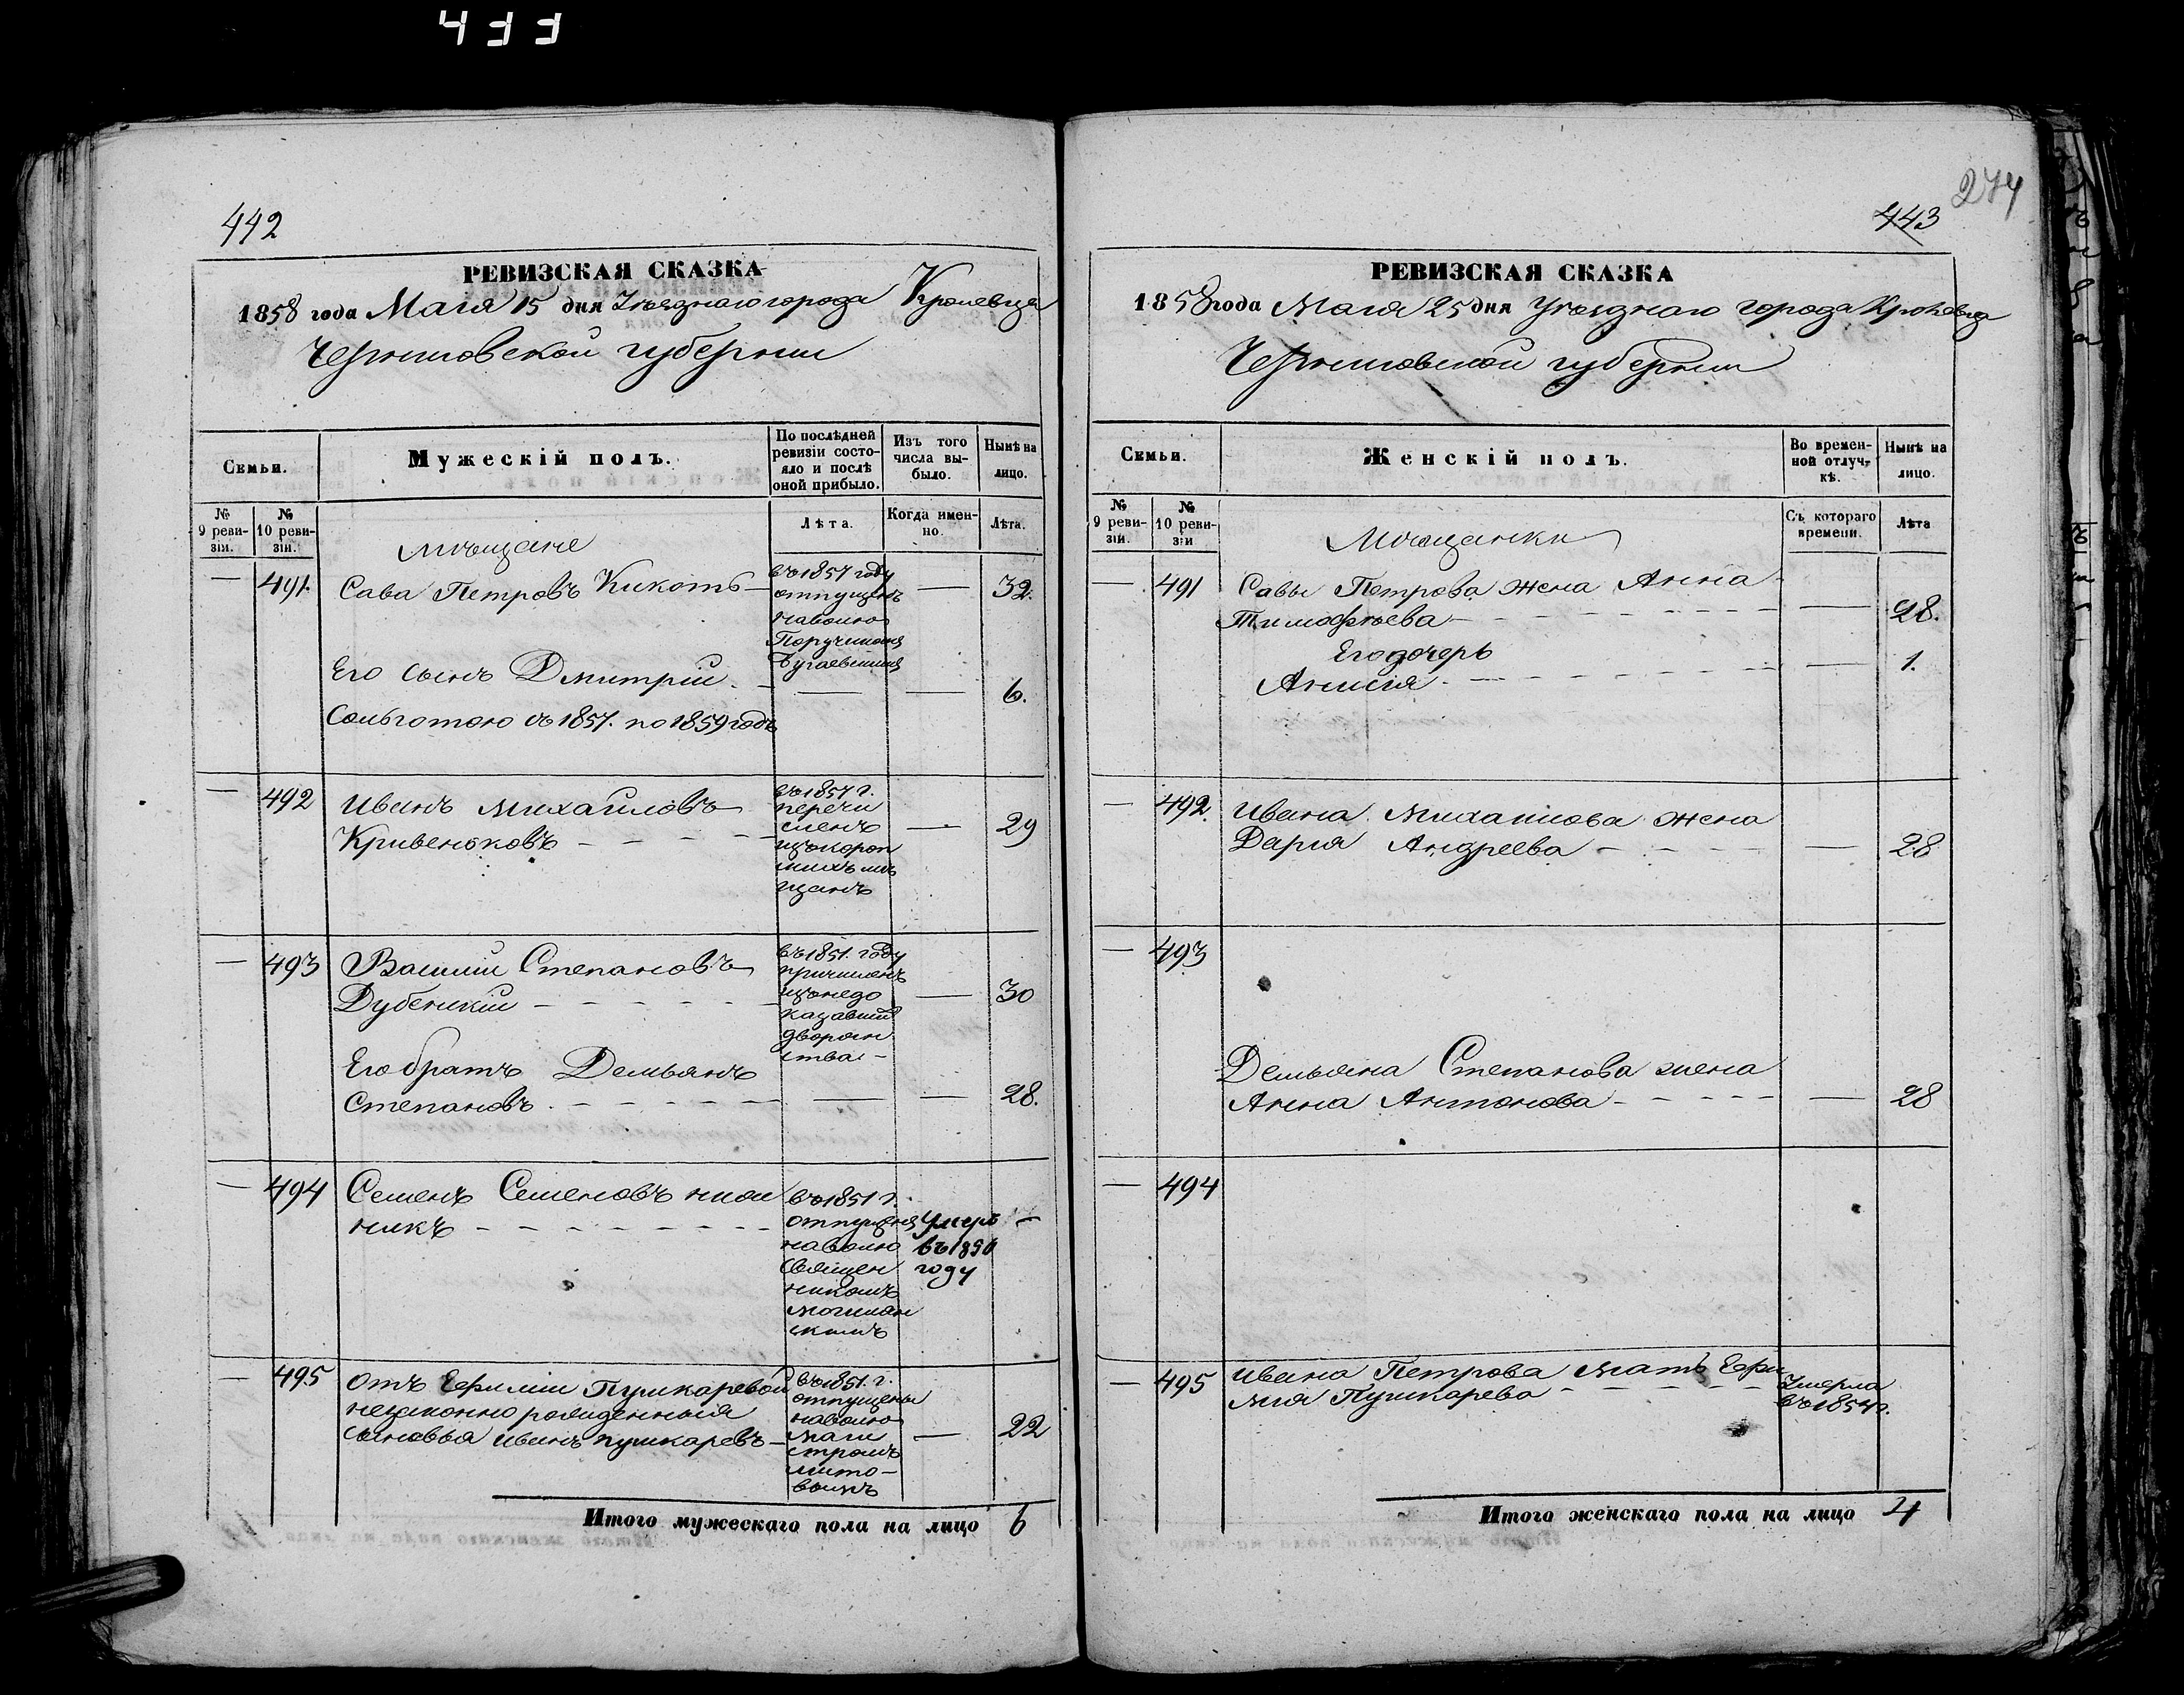 433
442
РЕВИЗСКАЯ СКАЗКА
1858 года Маія 15 дня Уѣзднаго города Кролевца
Черниговской губерніи
Семьи.
Мужескій полъ.
По послѣдней ревизіи состояло и послѣ оной прибыло.
Изъ того числа выбыло.
Нынѣ на лицо.
№ 9 ревизіи.
№ 10 ревизіи.
Лѣта.
Когда именно.
Лѣта.
Мѣщане
— 491. Сава Петровъ Кикоть — въ 1857 году отпущенъ на волю — 32.
Его сынъ Дмитрій — — — 6.
Сольготою съ 1857. по 1859 годъ
— 492 Иванъ Михайловъ
Кривеноковъ — въ 1857 г. перечисленъ мѣщанъ — 29
— 493 Василий Степановъ
Дубенскій — въ 1851. году причисленъ изъ недоказавшихъ дворянства — — 30
Его братъ Демьянъ
Степановъ — — — 28.
— 494 Семенъ Семеновъ
въ 1851 г. на волю Священникомъ
Умеръ въ 1850 году —
— 495 отъ Ефиміи Пушкаревой
незаконно рожденныя
сыновья Иванъ Пушкаревъ — въ 1851. г. отпущены на волю — 22
Итого мужескаго пола на лицо 6
274
443
РЕВИЗСКАЯ СКАЗКА
1858 года Маія 25 дня Уѣзднаго города Кролевца
Черниговской губерніи
Семьи.
Женскій полъ.
Во временной отлучкѣ.
Нынѣ на лицо.
№ 9 ревизіи.
№ 10 ревизіи
Съ котораго времени.
Лѣта
Мѣщанки
— 491 Савы Петрова жена Анна
Тимофѣева — — 28.
Его дочерь
— 1.
— 492. Ивана Михайлова жена
Дарія Андреева — — 28
— 493
Демьяна Степанова жена
Анна Антонова — — 28
— 494
— 495 Ивана Петрова мать Ефи
мія Пушкарева — Умерла въ 1854 г.
Итого женскаго пола на лицо 4